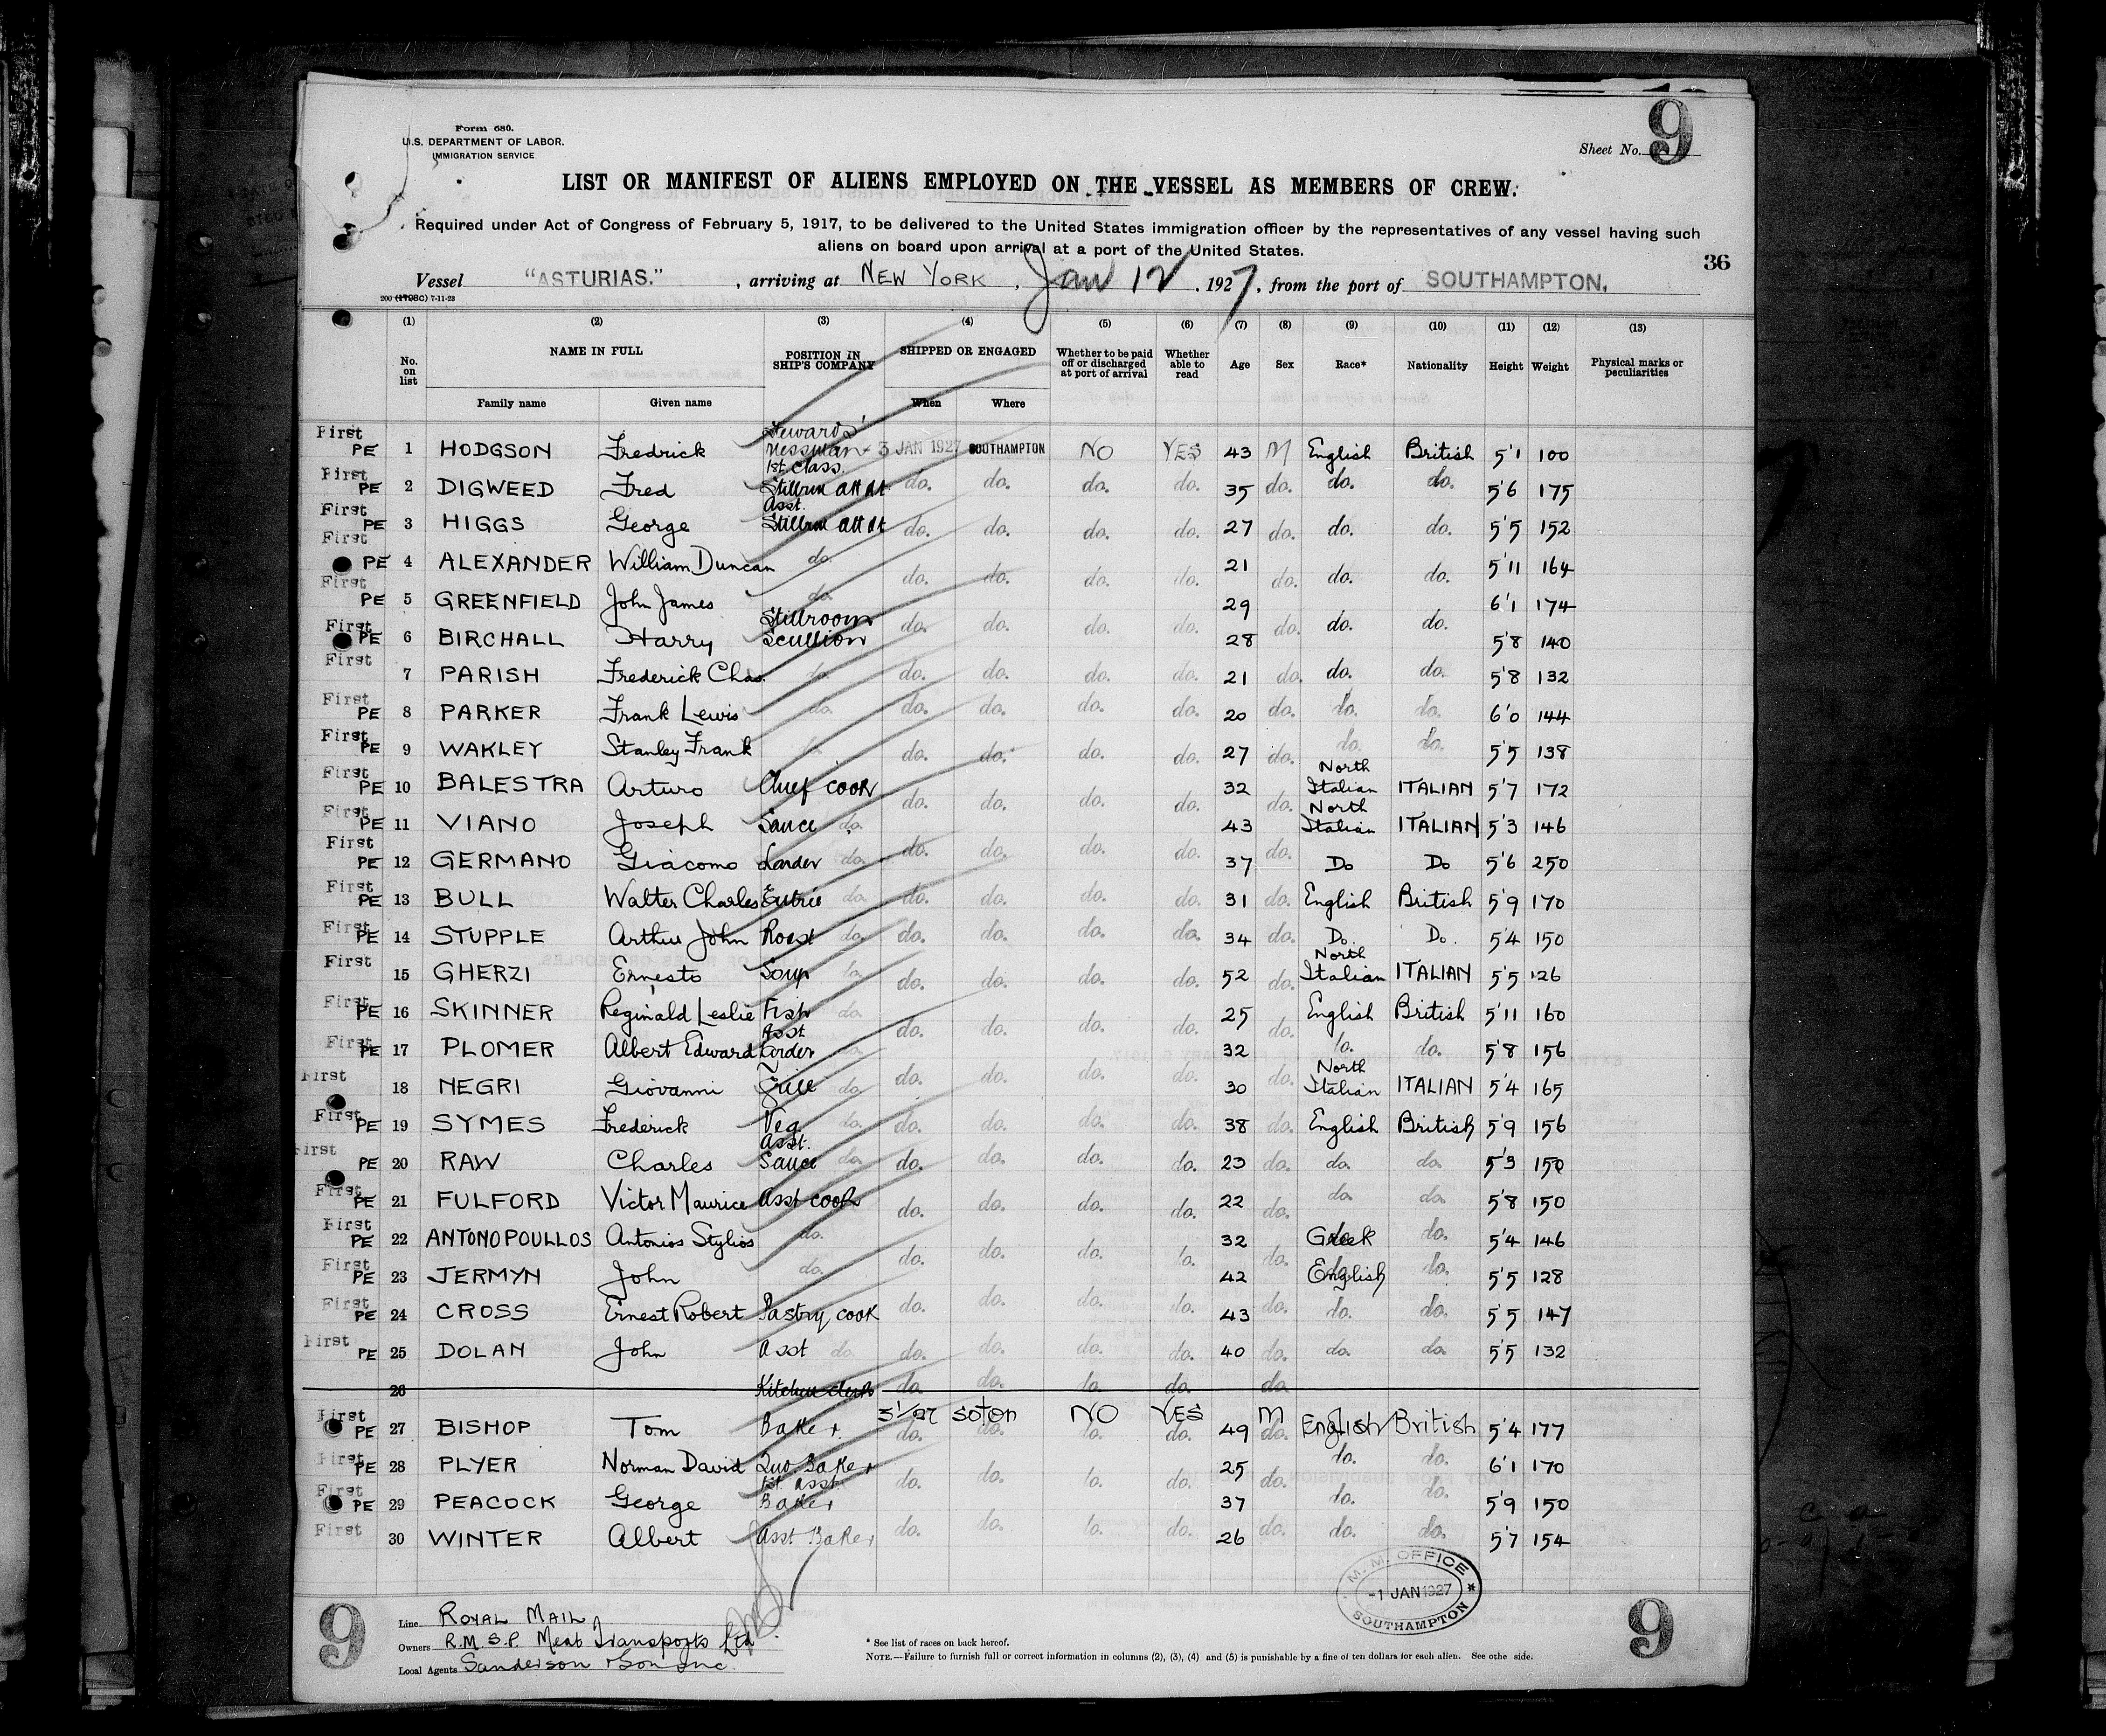 9
Form 680.
U.S. DEPARTMENT OF LABOR.
IMMIGRATION SERVICE
Sheet No.
LIST OR MANIFEST OF ALIENS EMPLOYED ON THE VESSEL AS MEMBERS OF CREW.
Required under Act of Congress of February 5, 1917, to be delivered to the United States immigration officer by the representatives of any vessel having such
aliens on board upon arrival at a port of the United States.
36
Vessel "ASTURIAS." , arriving at NEW YORK , Jan 12 , 1927, from the port of SOUTHAMPTON.
200 (1798C) 7-11-23
(1) (2) (3) (4) (5) (6) (7) (8) (9) (10) (11) (12) (13)
No. on list NAME IN FULL POSITION IN SHIP'S COMPANY SHIPPED OR ENGAGED Whether to be paid off or discharged at port of arrival Whether able to read Age Sex Race* Nationality Height Weight Physical marks or peculiarities
Family name Given name When Where
First PE 1 HODGSON Fredrick Stewards' Messman 3 JAN 1927 SOUTHAMPTON NO YES 43 M English British 5'1 100
First PE 2 DIGWEED Fred 1st Class. Stillrm Att dt do. do. do. do. 35 do. do. do. 5'6 175
First PE 3 HIGGS George Asst. Stillrm Att dt do. do. do. do. 27 do. do. do. 5'5 152
First PE 4 ALEXANDER William Duncan do. do. do. do. do. 21 do. do. do. 5'11 164
First PE 5 GREENFIELD John James do. do. do. do. do. 29 do. do. do. 6'1 174
First PE 6 BIRCHALL Harry Stillroom Scullion 28 5'8 140
First 7 PARISH Frederick Chas. do. do. do. do. do. 21 do. do. do. 5'8 132
First PE 8 PARKER Frank Lewis do. do. do. do. do. 20 do. do. do. 6'0 144
First PE 9 WAKLEY Stanley Frank do. do. do. do. do. 27 do. do. do. 5'5 138
First PE 10 BALESTRA Arturo Chief cook do. do. do. do. 32 do. North Italian ITALIAN 5'7 172
First PE 11 VIANO Joseph Sauce do. 43 North Italian ITALIAN 5'3 146
First PE 12 GERMANO Giacomo Larder do. do. do. do. do. 37 do. Do Do 5'6 250
First PE 13 BULL Walter Charles Entrie do. do. do. do. do. 31 do. English British 5'9 170
First PE 14 STUPPLE Arthur John Roast do. do. do. do. do. 34 do. Do. Do. 5'4 150
First 15 GHERZI Ernesto Soup do. do. do. do. do. 52 do. North Italian ITALIAN 5'5 126
First PE 16 SKINNER Reginald Leslie Fish do. do. do. do. do. 25 do. English British 5'11 160
First PE 17 PLOMER Albert Edward Asst Larder do. 32 do. do. 5'8 156
First 18 NEGRI Giovanni Grill do. do. do. do. do. 30 do. North Italian ITALIAN 5'4 165
First PE 19 SYMES Frederick Veg. do. do. do. do. do. 38 do. English British 5'9 156
First PE 20 RAW Charles Asst. Sauce do. do. do. do. do. 23 do. do. do. 5'3 150
First PE 21 FULFORD Victor Maurice Asst cook do. do. do. do. 22 do. do. do. 5'8 150
First PE 22 ANTONOPOULLOS Antonios Stylios do. do. do. do. do. 32 do. Greek do. 5'4 146
First PE 23 JERMYN John do. 42 English do. 5'5 128
First PE 24 CROSS Ernest Robert Pastry cook do. do. do. do. 43 do. do. do. 5'5 147
First PE 25 DOLAN John Asst do. do. do. do. do. 40 do. do. do. 5'5 132
26 Kitchen clerk do. do. do. do. do.
First PE 27 BISHOP Tom Baker. 3/1/27 SOTON NO YES 49 M English British 5'4 177
do. do. do. do. do.
First PE 28 PLYER Norman David 2nd. Baker do. do. do. do. 25 do. do. do. 6'1 170
First PE 29 PEACOCK George 1st. Asst. Baker 37 do. do. 5'9 150
First 30 WINTER Albert Asst Baker do. do. do. do. 26 do. do. do. 5'7 154
M.M. OFFICE
-1 JAN 1927
SOUTHAMPTON
9
Line ROYAL MAIL
Owners R.M.S.P. Meat Transports Ltd
Local Agents Sanderson & Son Inc.
* See list of races on back hereof.
NOTE.—Failure to furnish full or correct information in columns (2), (3), (4) and (5) is punishable by a fine of ten dollars for each alien. See othe side.
9